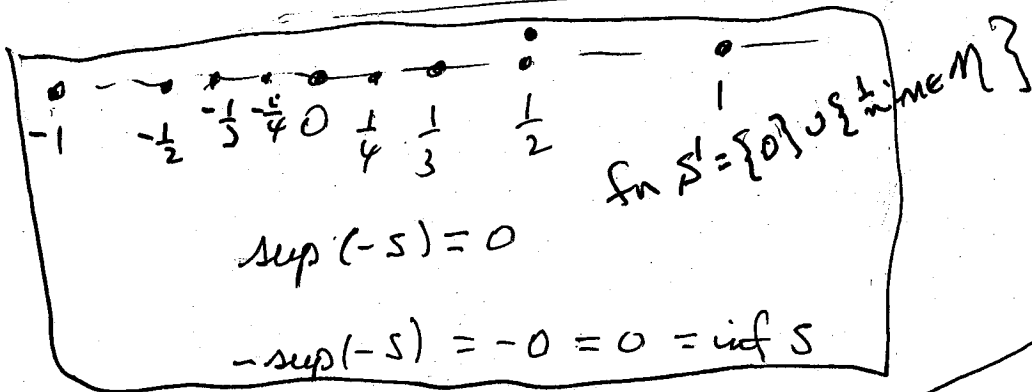 -1 -1/2 -1/3 -1/4 0 1/4 1/3 1/2 1
for S = {0} ∪ {1/n : n ∈ N}
sup (-S) = 0
-sup(-S) = -0 = 0 = inf S